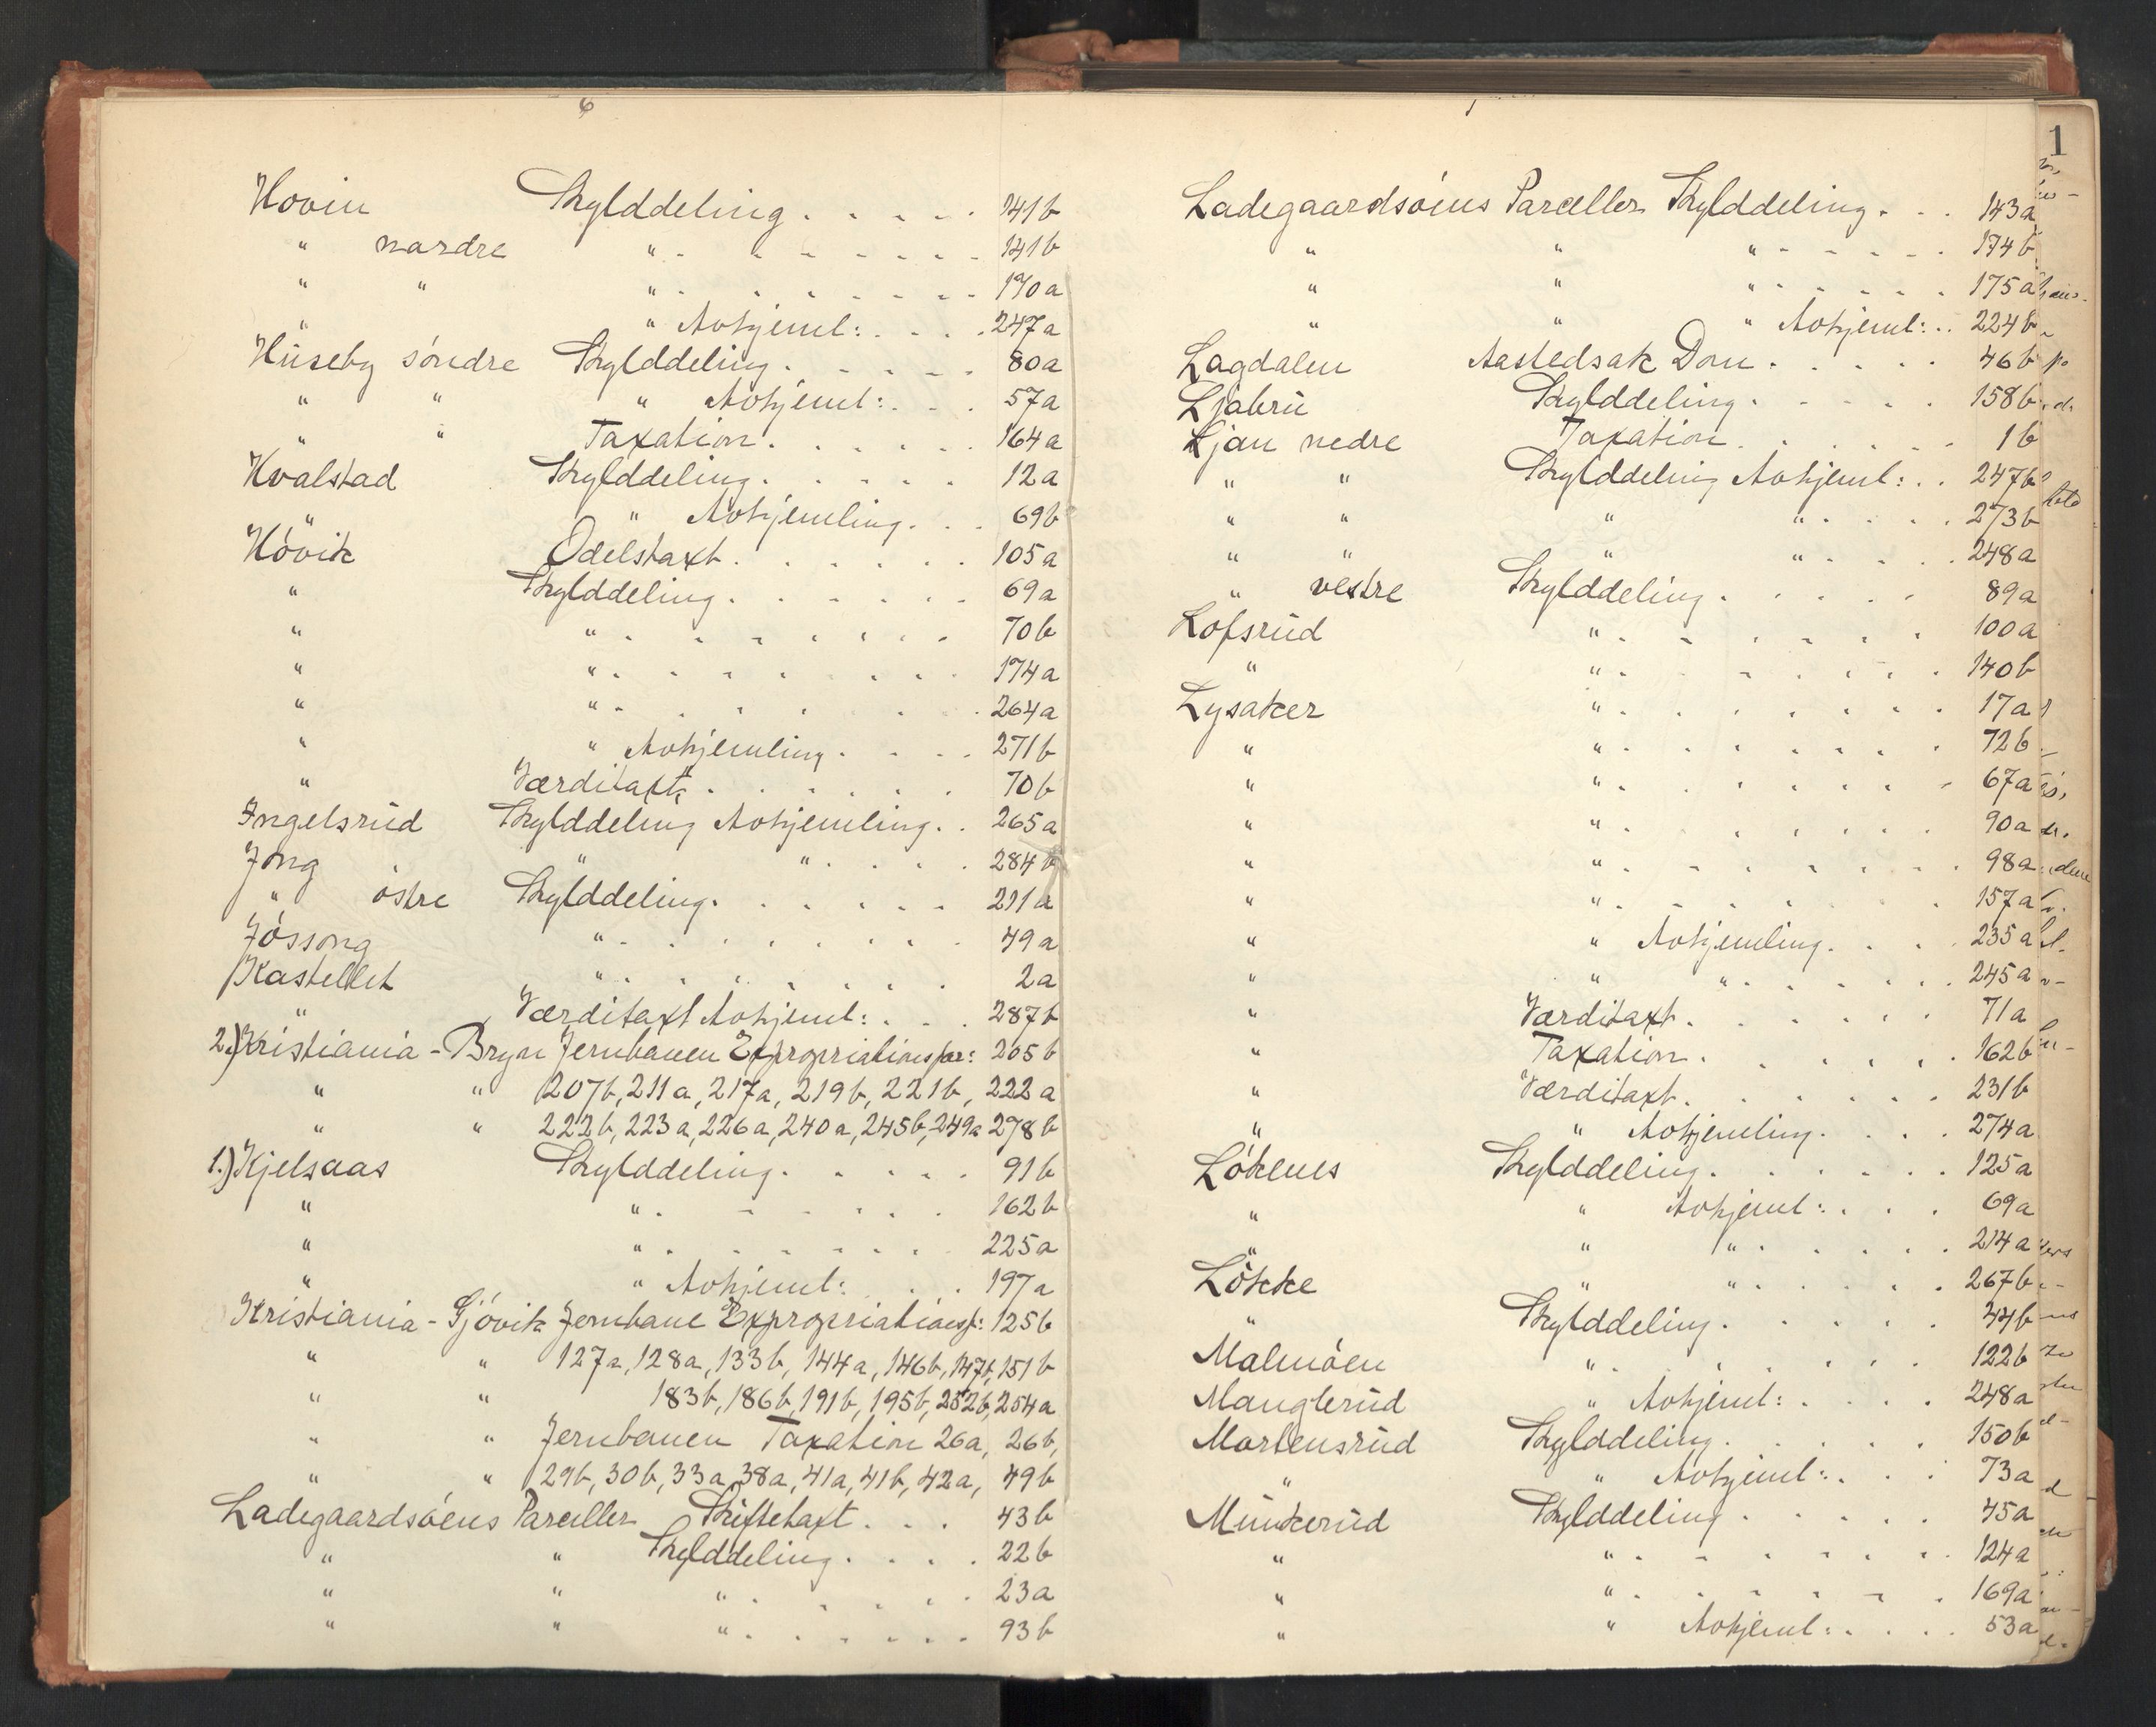 6
Hovin Skylddeling . . . . . 141b
" nordre " . . . . . . . 141b
" " " . . . . . . . 190a
" " Avhjeml: . . . 247a
Huseby söndre Skylddeling . . . . . 80a
" " " Avhjeml: . . . 57a
" " Taxation . . . . . . 164a
Hvalstad Skylddeling . . . . . 12a
" " Avhjemling . . . 69b
Hövik Odelstaxt . . . . . . 105a
" Skylddeling . . . . . . 69a
" " . . . . . . . . 70b
" " . . . . . . . . 174a
" " . . . . . . . . 264a
" " Avhjemling . . . . 271b
" Værditaxt . . . . . . 70b
Ingelsrud Skylddeling Avhjemling . . 265a
Jong " " . . . . 284b
" östre Skylddeling . . . . . . 211a
Jössong " . . . . . . . . 49a
Kastellet " . . . . . . . . 2a
" Værditaxt Avhjeml: . . . 287b
2.) Kristiania - Bryn Jernbanen Expropriationsfor: 205b
" " 207b, 211a, 217a, 219b, 221b, 222a
" " 222b, 223a, 226a, 240a, 245b, 249a 278b
1.) Kjelsaas Skylddeling . . . . . 91b
" " . . . . . . 162b
" " . . . . . . . 225a
" " Avhjeml: . . . 197a
Kristiania - Gjövik Jernbane Expropriationsf: 125b
" " 127a, 128a, 133b, 144a, 146b, 147b, 151b
" " 183b, 186b, 191b, 195b, 252b, 254a
" " Jernbanen Taxation 26a, 26b,
" " 29b, 30b, 33a, 38a, 41a, 41b, 42a, 49b
Ladegaardsöens Parceller Skiftetaxt . . . 43b
" " Skylddeling . . . . 22b
" " " . . . . . . 23a
" " " . . . . . . 93b
1
Ladegaardsöens Parceller Skylddeling . . . 143a
" " " . . . . . 174b
" " " . . . . . . 175a
" " " Avhjeml: . . 224b
Lagdalen Aastedsak Dom . . . . . 46b
Ljabru Skylddeling . . . . . 158b
Ljan nedre Taxation . . . . . . 1b
" " Skylddeling Avhjeml: . . 247b
" " " " . . . . 273b
" " " " . . . . 248a
" vestre Skylddeling . . . . . 89a
Lofsrud " . . . . . . 100a
" " . . . . . . . 140b
Lysaker " . . . . . . . 17a
" " . . . . . . . 72b
" " . . . . . . . 67a
" " . . . . . . . 90a
" " . . . . . . . . 98a
" " . . . . . . . 157a
" " Avhjemling . . . . 235a
" " " . . . . . . 245a
" Værditaxt . . . . . . 71a
" Taxation . . . . . . 162b
" Værditaxt . . . . . . 231b
" " Avhjemling . . . . 274a
Lökenes Skylddeling . . . . . . 125a
" " Avhjeml: . . . . 69a
" " " . . . . . . 214a
Lökke " " . . . . . . 267b
" Skylddeling . . . . . 44b
Malmöen " . . . . . . . 122b
Manglerud " Avhjeml: . . . . 248a
Mortensrud Skylddeling . . . . . 150b
" " Avhjeml: . . . 73a
Munkerud Skylddeling . . . . . 45a
" " . . . . . . . 124a
" " . . . . . . . 169a
" " Avhjeml: . . . . 53a